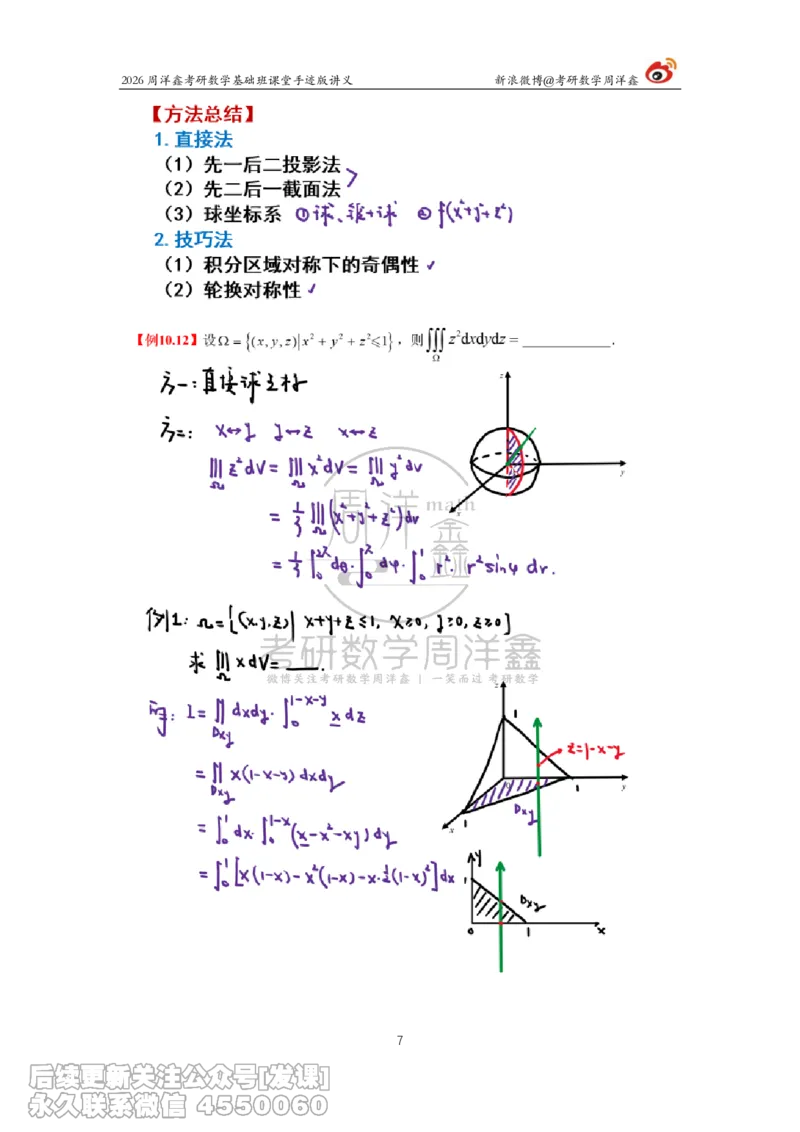 2026 周洋鑫考研数学基础班课堂手迹版讲义 新浪微博@考研数学周洋鑫
【方法总结】
1. 直接法
（1）先一后二投影法
（2）先二后一截面法
（3）球坐标系 ①球、锥+球 ②f(x²+y²+z²)
2. 技巧法
（1）积分区域对称下的奇偶性 ✓
（2）轮换对称性 ✓
【例10.12】设Ω = {(x, y, z)| x² + y² + z² ⩽ 1}，则∭_Ω z²dxdydz = ____________.
方一:直接球坐标
方二: x↔y y↔z x↔z
∭_Ω z²dV = ∭_Ω x²dV = ∭_Ω y²dv
= 1/3 ∭_Ω (x²+y²+z²)dv
= 1/3 ∫₀^{2π} dθ·∫₀^π dφ·∫₀¹ r²·r²sinφ dr.
z
y
x
周洋鑫
math
例1: Ω={(x,y,z)| x+y+z≤1, x≥0, y≥0, z≥0}
求 ∭_Ω xdV = ___.
考研数学周洋鑫
微博关注考研数学周洋鑫 | 一笑而过 考研数学
解: I = ∬_{Dxy} dxdy·∫₀^{1-x-y} x dz
= ∬_{Dxy} x(1-x-y) dxdy
= ∫₀¹ dx·∫₀^{1-x} (x-x²-xy) dy
= ∫₀¹ [x(1-x)-x²(1-x)-x·½(1-x)²] dx
z
1
z=1-x-y
1
y
Dxy
1
x
y
1
Dxy
0
1
x
7
后续更新关注公众号[发课]
永久联系微信 4550060